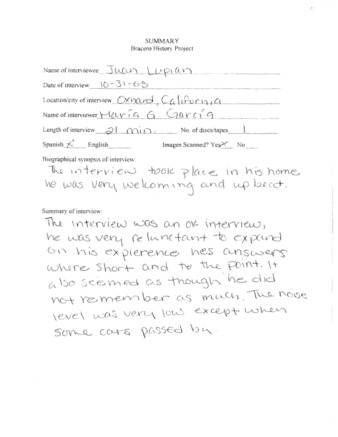 SUMMARY
Bracero History Project
Name of interviewee Juan Lupian
Date of interview 10-31-05
Location/city of interview Oxnard, California
Name of interviewer Maria G Garcia
Length of interview 21 min. No. of discs/tapes 1
Spanish X English Images Scanned? Yes X No
Biographical synopsis of interview:
The interview took place in his home
he was very welcoming and upbeat.
Summary of interview:
The interview was an ok interview,
he was very relunctant to expand
on his expierence hes answers
where short and to the point. It
also seemed as though he did
not remember as much. The noise
level was very low except when
some cars passed by.